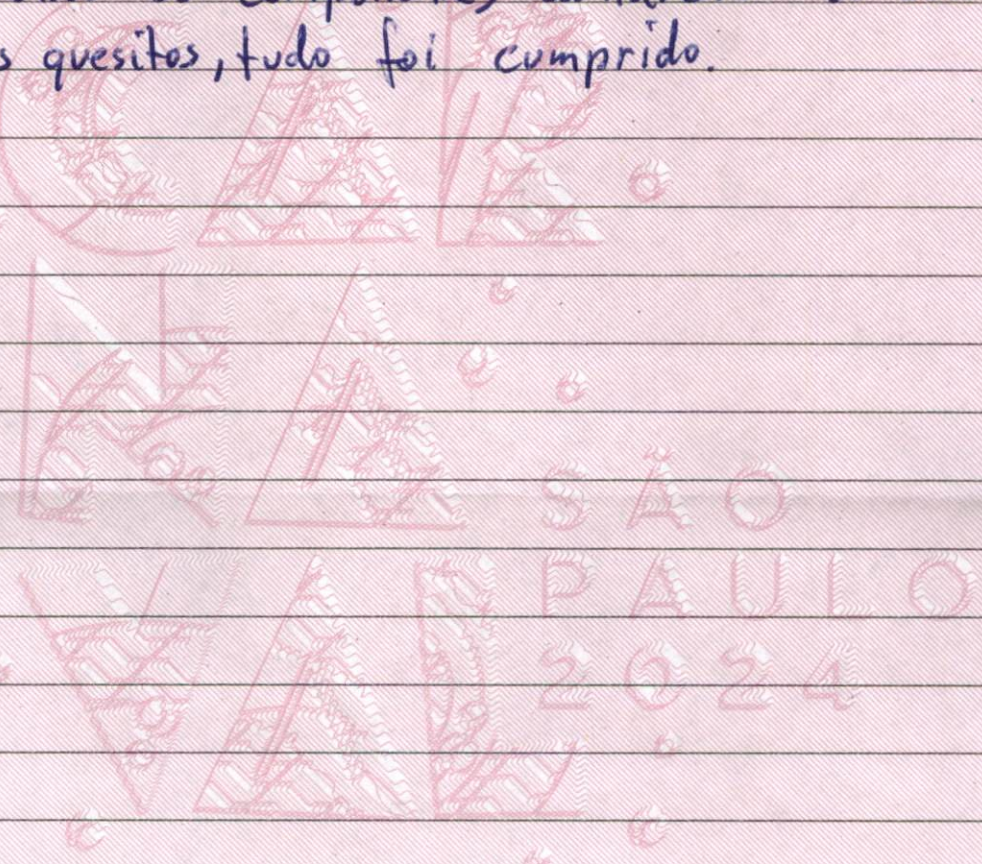 s quesitos, tudo foi cumprido.
CAR
NA
SÃO
VAL
PAULO
2024